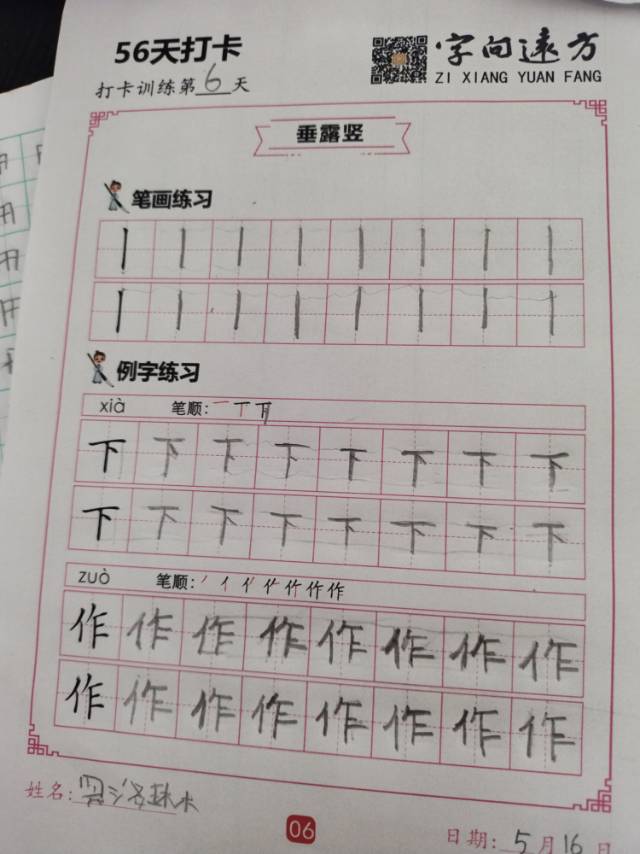 56天打卡
字向遠方
打卡训练第6天
ZI XIANG YUAN FANG
垂露竖
笔画练习
例字练习
xià 笔顺：一丅下
下下下下下下下下
下下下下下下下下
zuò 笔顺：
作作作作作作作作
作作作作作作作作
姓名：
06
日期：5月16日